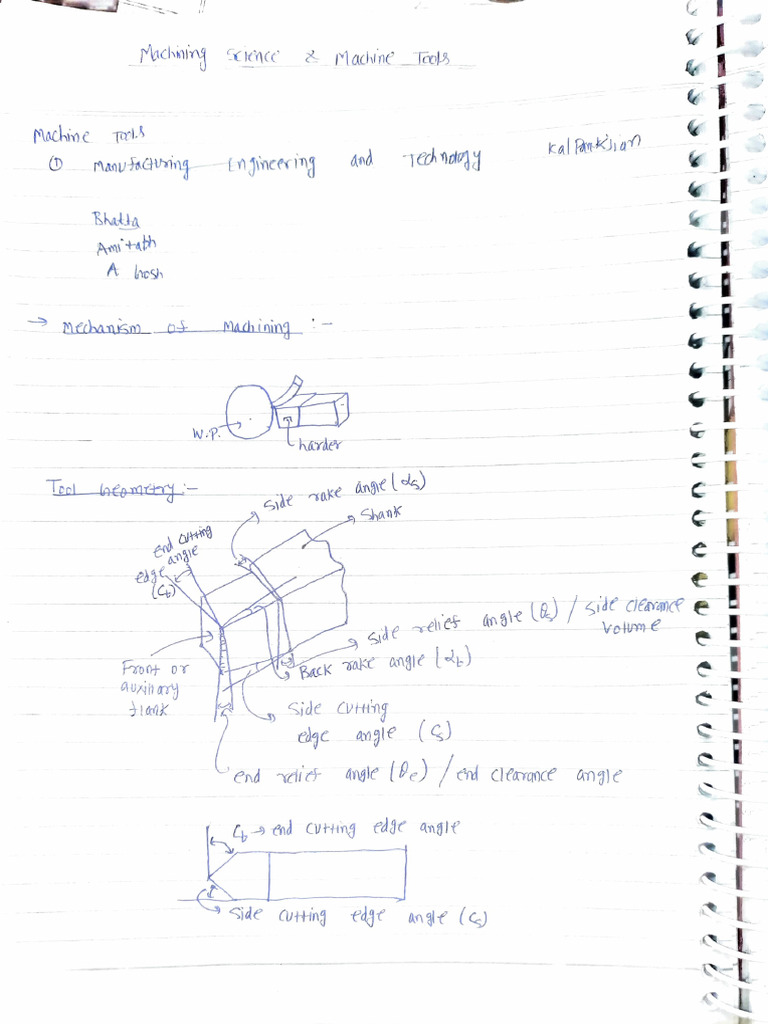 Machining Science & Machine Tools
Machine Tools
① Manufacturing Engineering and Technology Kalpankjian
Bhatta
Amitabh
A hosh
→ Mechanism of Machining :-
W.P.
harder
Tool Geometry :-
Side rake angle (αs)
Shank
End cutting
edge angle
(Cb)
Side relief angle (θs) / Side clearance
volume
Back rake angle (αb)
Front or
auxiliary
flank
Side cutting
edge angle (Cs)
end relief angle (θe) / end clearance angle
Cb → end cutting edge angle
Side cutting edge angle (Cs)